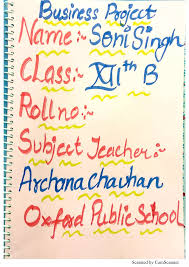 Business Project
Name:- Soni Singh
Class:- XII th B
Roll no:-
Subject Teacher:-
Archana Chauhan
Oxford Public School
Scanned by CamScanner